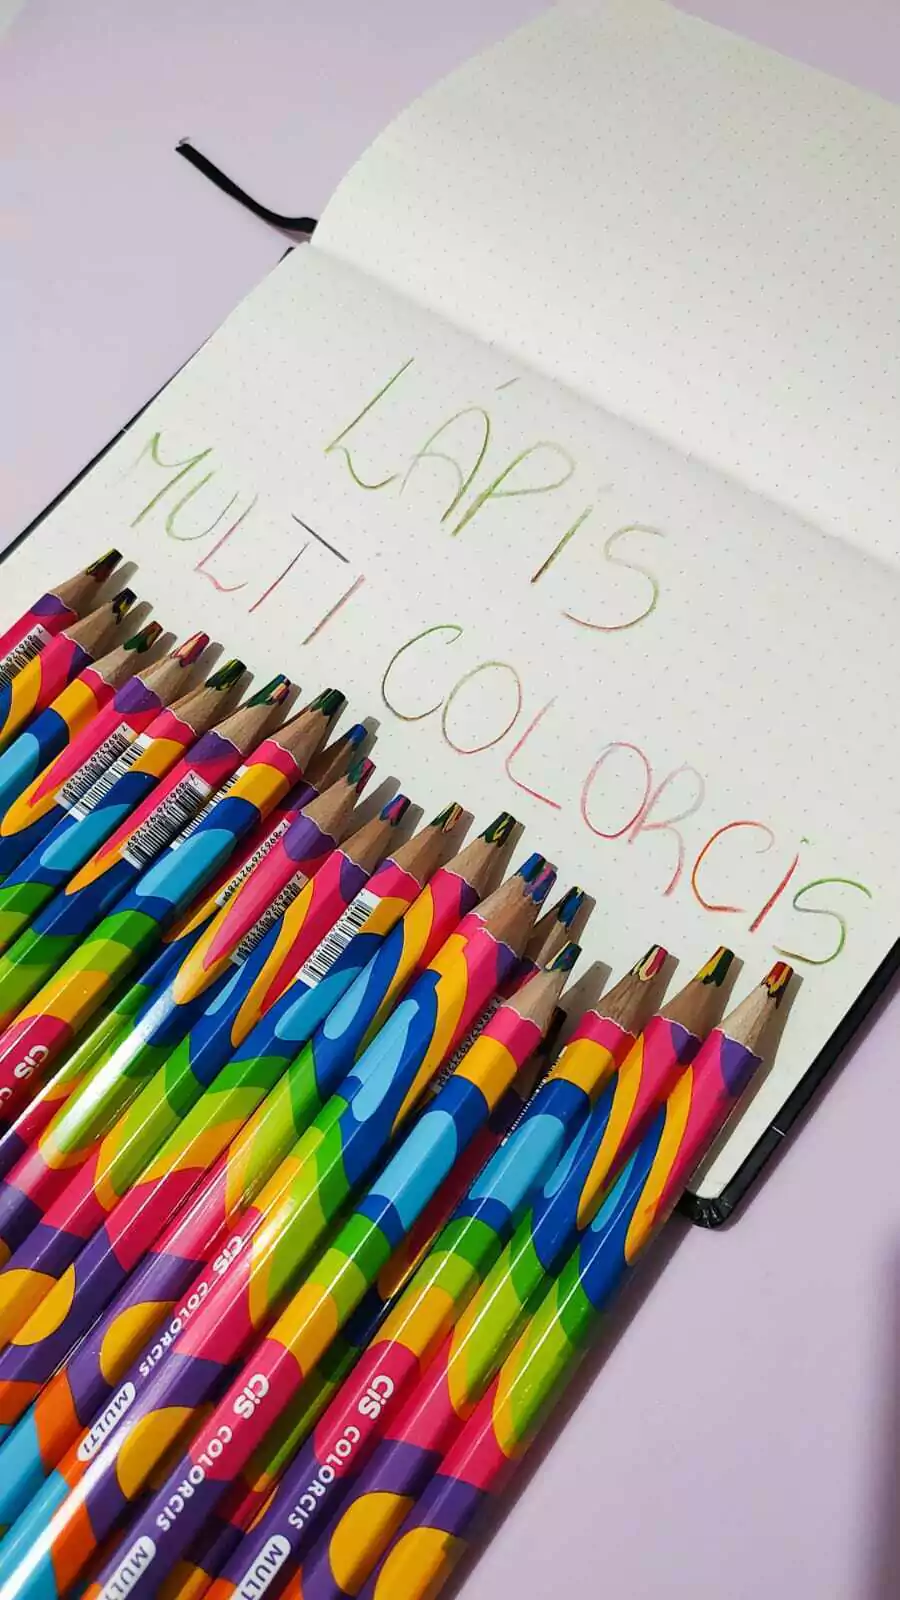 LÁPIS
MULTI COLORCIS
CiS COLORCIS MULTI
CiS COLORCIS MULTI
CiS COLORCIS MULTI
CiS